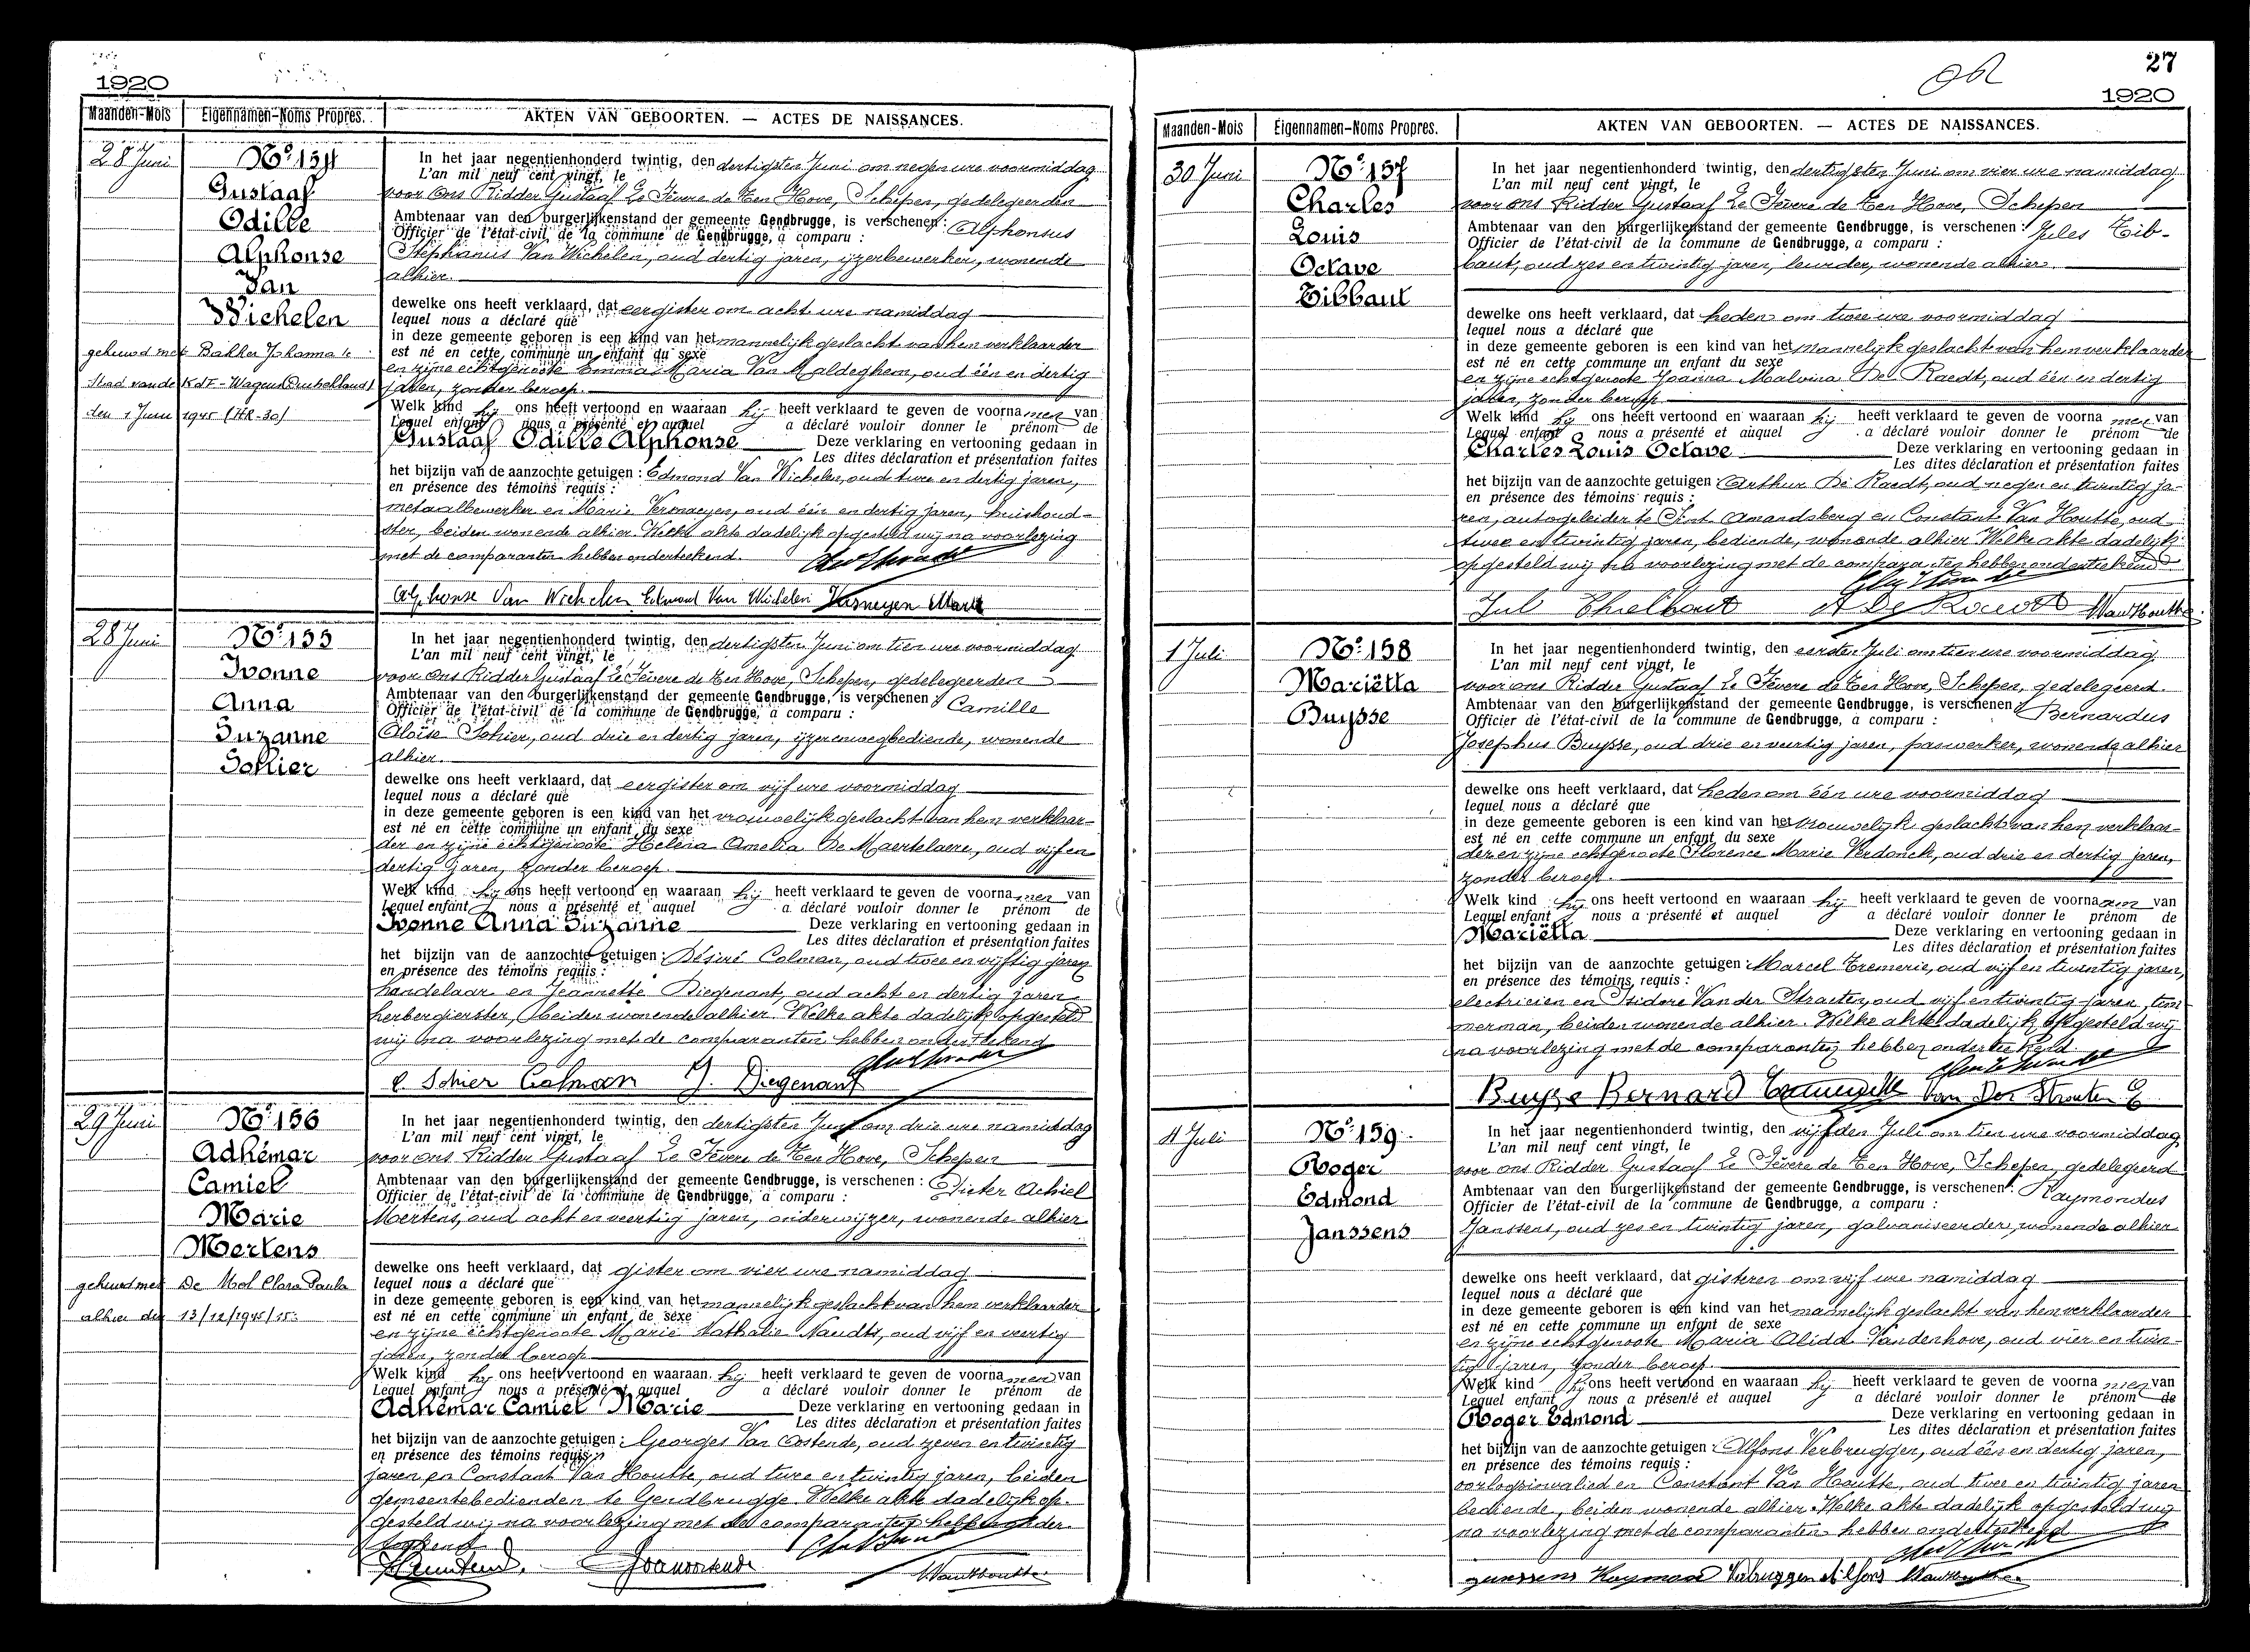 1920
Maanden-Mois Eigennamen-Noms Propres. AKTEN VAN GEBOORTEN. — ACTES DE NAISSANCES.
28 Juni
No. 154
Gustaaf
Odille
Alphonse
Van
Wichelen
gehuwd met Bakker Johanna te
Stad van de KdF-Wagens (Duitschland)
den 1 Juni 1945 (HR-30)
In het jaar negentienhonderd twintig, den dertigsten Juni om negen ure voormiddag
L'an mil neuf cent vingt, le
voor ons Ridder Gustaaf Le Fèvere de Ten Hove, Schepen, gedelegeerden
Ambtenaar van den burgerlijkenstand der gemeente Gendbrugge, is verschenen: Alphonsus
Officier de l'état-civil de la commune de Gendbrugge, a comparu :
Stephanus Van Wichelen, oud dertig jaren, ijzerbewerker, wonende
alhier.
dewelke ons heeft verklaard, dat eergister om acht ure namiddag
lequel nous a déclaré que
in deze gemeente geboren is een kind van het mannelijk geslacht van hem verklaarder
est né en cette commune un enfant du sexe
en zijne echtgenoote Emma Maria Van Maldeghem, oud één en dertig
jaren, zonder beroep.
Welk kind hij ons heeft vertoond en waaraan hij heeft verklaard te geven de voornamen van
Lequel enfant nous a présenté et auquel a déclaré vouloir donner le prénom de
Gustaaf Odille Alphonse Deze verklaring en vertooning gedaan in
Les dites déclaration et présentation faites
het bijzijn van de aanzochte getuigen : Edmond Van Wichelen, oud twee en dertig jaren,
en présence des témoins requis :
metaalbewerker en Marie Vernaeyen, oud één en dertig jaren, huishoud-
ster, beiden wonende alhier. Welke akte dadelijk opgesteld wij na voorlezing
met de comparanten hebben onderteekend.
Alphonse Van Wichelen Edmond Van Wichelen Marie
28 Juni
No. 155
Ivonne
Anna
Suzanne
Sohier
In het jaar negentienhonderd twintig, den dertigsten Juni om tien ure voormiddag
L'an mil neuf cent vingt, le
voor ons Ridder Gustaaf Le Fèvere de Ten Hove, Schepen, gedelegeerden
Ambtenaar van den burgerlijkenstand der gemeente Gendbrugge, is verschenen : Camille
Officier de l'état-civil de la commune de Gendbrugge, a comparu :
Aloïse Sohier, oud drie en dertig jaren, ijzerenwegbediende, wonende
alhier.
dewelke ons heeft verklaard, dat eergister om vijf ure voormiddag
lequel nous a déclaré que
in deze gemeente geboren is een kind van het vrouwelijk geslacht van hem verklaar-
est né en cette commune un enfant du sexe
der en zijne echtgenoote Helena Amelia De Maertelaere, oud vijf en
dertig jaren, zonder beroep.
Welk kind hij ons heeft vertoond en waaraan hij heeft verklaard te geven de voornamen van
Lequel enfant nous a présenté et auquel a déclaré vouloir donner le prénom de
Ivonne Anna Suzanne Deze verklaring en vertooning gedaan in
Les dites déclaration et présentation faites
het bijzijn van de aanzochte getuigen : Désiré Colman, oud twee en vijftig jaren
en présence des témoins requis :
handelaar en Jeannette Diegenant, oud acht en dertig jaren
herbergierster, beiden wonende alhier. Welke akte dadelijk opgesteld
wij na voorlezing met de comparanten hebben onderteekend
C. Sohier Colman J. Diegenant
29 Juni
No. 156
Adhémar
Camiel
Marie
Mertens
gehuwd met De Mol Clara Paula
alhier den 13/12/1945/15:
In het jaar negentienhonderd twintig, den dertigsten Juni om drie ure namiddag
L'an mil neuf cent vingt, le
voor ons Ridder Gustaaf Le Fèvere de Ten Hove, Schepen
Ambtenaar van den burgerlijkenstand der gemeente Gendbrugge, is verschenen : Pieter Achiel
Officier de l'état-civil de la commune de Gendbrugge, a comparu :
Mertens, oud acht en veertig jaren, onderwijzer, wonende alhier
dewelke ons heeft verklaard, dat gister om vier ure namiddag
lequel nous a déclaré que
in deze gemeente geboren is een kind van het mannelijk geslacht van hem verklaarder
est né en cette commune un enfant de sexe
en zijne echtgenoote Marie Nathalie Naudts, oud vijf en veertig
jaren, zonder beroep
Welk kind hij ons heeft vertoond en waaraan hij heeft verklaard te geven de voornamen van
Lequel enfant nous a présenté et auquel a déclaré vouloir donner le prénom de
Adhémar Camiel Marie Deze verklaring en vertooning gedaan in
Les dites déclaration et présentation faites
het bijzijn van de aanzochte getuigen : Georges Van Oostende, oud zeven en twintig
en présence des témoins requis :
jaren en Constant Van Houtte, oud twee en twintig jaren, beiden
gemeentebedienden te Gendbrugge. Welke akte dadelijk op-
gesteld wij na voorlezing met de comparanten hebben onder-
teekend
VanHoutte
27
1920
Maanden-Mois Eigennamen-Noms Propres. AKTEN VAN GEBOORTEN. — ACTES DE NAISSANCES.
30 Juni
No. 157
Charles
Louis
Octave
Tibbaut
In het jaar negentienhonderd twintig, den dertigsten Juni om vier ure namiddag
L'an mil neuf cent vingt, le
voor ons Ridder Gustaaf Le Fèvere de Ten Hove, Schepen
Ambtenaar van den burgerlijkenstand der gemeente Gendbrugge, is verschenen : Jules Tib-
Officier de l'état-civil de la commune de Gendbrugge, a comparu :
baut, oud zes en twintig jaren, leurder, wonende alhier.
dewelke ons heeft verklaard, dat heden om twee ure voormiddag
lequel nous a déclaré que
in deze gemeente geboren is een kind van het mannelijk geslacht van hem verklaarder
est né en cette commune un enfant du sexe
en zijne echtgenoote Joanna Malvina De Raedt, oud één en dertig
jaren, zonder beroep.
Welk kind hij ons heeft vertoond en waaraan hij heeft verklaard te geven de voornamen van
Lequel enfant nous a présenté et auquel a déclaré vouloir donner le prénom de
Charles Louis Octave Deze verklaring en vertooning gedaan in
Les dites déclaration et présentation faites
het bijzijn van de aanzochte getuigen : Arthur De Raedt, oud negen en twintig ja-
en présence des témoins requis :
ren, autogeleider te Sint Amandsberg en Constant Van Houtte, oud
twee en twintig jaren, bediende, wonende alhier Welke akte dadelijk
opgesteld wij na voorlezing met de comparanten hebben onderteekend
Jul A De Raedt VanHoutte
1 Juli
No. 158
Mariëtta
Buysse
In het jaar negentienhonderd twintig, den eersten Juli om tien ure voormiddag
L'an mil neuf cent vingt, le
voor ons Ridder Gustaaf Le Fèvere de Ten Hove, Schepen, gedelegeerd.
Ambtenaar van den burgerlijkenstand der gemeente Gendbrugge, is verschenen : Bernardus
Officier de l'état-civil de la commune de Gendbrugge, a comparu :
Josephus Buysse, oud drie en veertig jaren, paswerker, wonende alhier
dewelke ons heeft verklaard, dat heden om één ure voormiddag
lequel nous a déclaré que
in deze gemeente geboren is een kind van het vrouwelijk geslacht van hem verklaar-
est né en cette commune un enfant du sexe
der en zijne echtgenoote Florence Marie Verdonck, oud drie en dertig jaren,
zonder beroep.
Welk kind hij ons heeft vertoond en waaraan hij heeft verklaard te geven de voornaam van
Lequel enfant nous a présenté et auquel a déclaré vouloir donner le prénom de
Mariëtta Deze verklaring en vertooning gedaan in
Les dites déclaration et présentation faites
het bijzijn van de aanzochte getuigen : Marcel Tremerie, oud vijf en twintig jaren,
en présence des témoins requis :
electricien en Isidore Van der Straeten, oud vijf en twintig jaren, tim-
merman, beiden wonende alhier. Welke akte dadelijk opgesteld wij
na voorlezing met de comparanten hebben onderteekend
Buysse Bernard Van Der Straeten
4 Juli
No. 159.
Roger
Edmond
Janssens
In het jaar negentienhonderd twintig, den vijfden Juli om tien ure voormiddag
L'an mil neuf cent vingt, le
voor ons Ridder Gustaaf Le Fèvere de Ten Hove, Schepen, gedelegeerd
Ambtenaar van den burgerlijkenstand der gemeente Gendbrugge, is verschenen : Raymondus
Officier de l'état-civil de la commune de Gendbrugge, a comparu :
Janssens, oud zes en twintig jaren, galvaniseerder, wonende alhier
dewelke ons heeft verklaard, dat gisteren om vijf ure namiddag
lequel nous a déclaré que
in deze gemeente geboren is een kind van het mannelijk geslacht van hem verklaarder
est né en cette commune un enfant de sexe
en zijne echtgenoote Maria Alida Vandenhove, oud vier en twin-
tig jaren, zonder beroep.
Welk kind hij ons heeft vertoond en waaraan hij heeft verklaard te geven de voornamen van
Lequel enfant nous a présenté et auquel a déclaré vouloir donner le prénom de
Roger Edmond Deze verklaring en vertooning gedaan in
Les dites déclaration et présentation faites
het bijzijn van de aanzochte getuigen : Alfons Verbruggen, oud één en dertig jaren,
en présence des témoins requis :
oorlogsinvalied en Constant Van Houtte, oud twee en twintig jaren
bediende, beiden wonende alhier. Welke akte dadelijk opgesteld wij
na voorlezing met de comparanten hebben onderteekend
Janssens Raymond Verbruggen Alfons VanHoutte